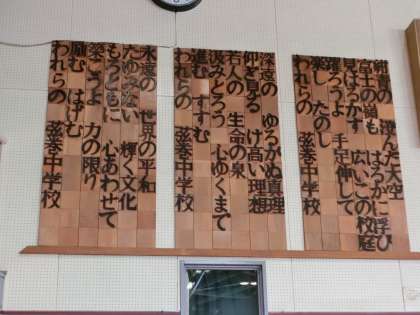 紺碧の 澄んだ大空
高千の嶺も はるかに浮び
見はるかす 広いこの校庭
躍ろうよ 手足伸して
楽し たのし
われらの 弦巻中学校
深遠の ゆるがぬ真理
仰ぎ見る け高い理想
若人の 生命の泉
汲みとろう 心ゆくまで
進む すすむ
われらの 弦巻中学校
永遠の 世界の平和
たゆみない 輝く文化
もろともに 心あわせて
築こうよ 力の限り
励む はげむ
われらの 弦巻中学校